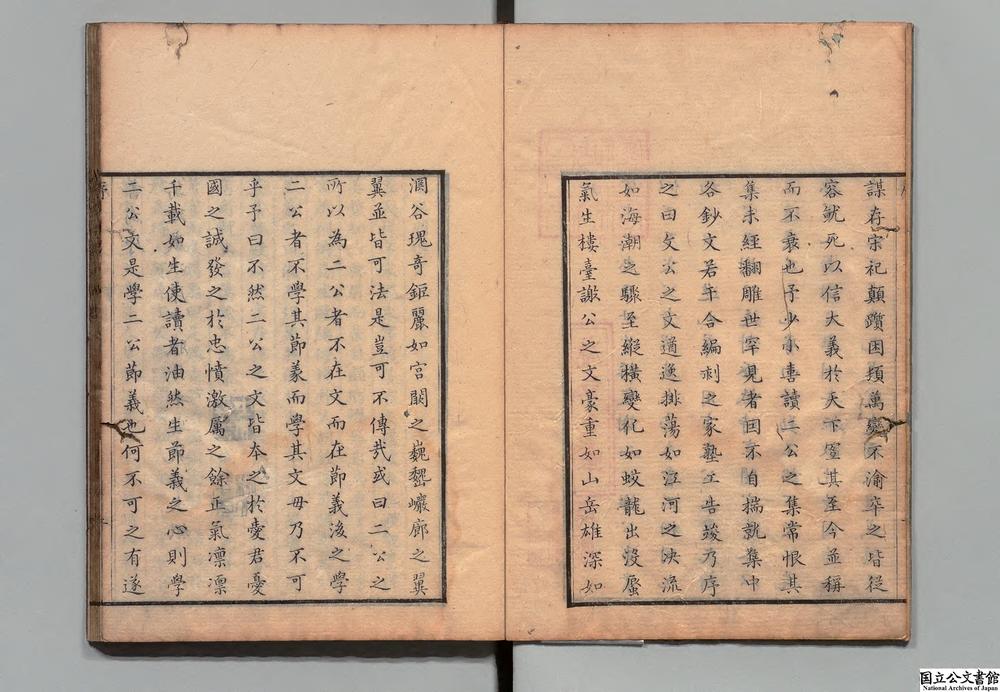 謀存宗祀顛躓困頓萬變不渝卒之皆從
容就死以信大義於天下宜其至今並稱
而不衰也予少小喜讀二公之集常恨其
集未經翻雕世罕見者因不自揣就集中
各鈔文若干合編刺之家塾工告竣乃序
之曰文公之文遒逸排蕩如江河之決流
如海潮之驟至縱橫變化如蛟龍出沒蜃
氣生樓臺謝公之文豪重如山岳雄深如
澗谷瑰奇鉅麗如宮闕之巍巍巖廊之翼
翼並皆可法是豈可不傳哉或曰二公之
所以為二公者不在文而在節義後之學
二公者不學其節義而學其文毋乃不可
乎予曰不然二公之文皆本之於愛君憂
國之誠發之於忠憤激厲之餘正氣凛凛
千載如生使讀者油然生節義之心則學
二公文是學二公節義也何不可之有遂
序
国立公文書館
National Archives of Japan